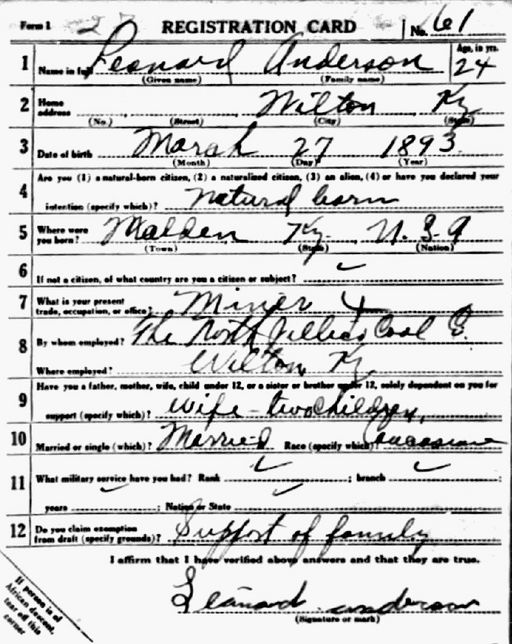 Form 1 REGISTRATION CARD No. 61
1 Name in full Leonard Anderson Age, in yrs. 24
(Given name) (Family name)
2 Home address Wilton Ky
(No.) (Street) (City) (State)
3 Date of birth March 27 1893
(Month) (Day) (Year)
4 Are you (1) a natural-born citizen, (2) a naturalized citizen, (3) an alien, (4) or have you declared your
intention (specify which)? natural born
5 Where were you born? Malden Ky. U.S.A
(Town) (State) (Nation)
6 If not a citizen, of what country are you a citizen or subject? ✓
7 What is your present trade, occupation, or office? Miner 4
8 By whom employed? The North Jellico Coal C.
Where employed? Wilton, Ky
9 Have you a father, mother, wife, child under 12, or a sister or brother under 12, solely dependent on you for
support (specify which)? Wife - two children,
10 Married or single (which)? Married Race (specify which)? Caucasian
11 What military service have you had? Rank ✓ ; branch ✓ ;
years ✓ ; Nation or State ✓
12 Do you claim exemption from draft (specify grounds)? Support of family
I affirm that I have verified above answers and that they are true.
Leanard anderson
(Signature or mark)
If person is of
African descent,
tear off this
corner